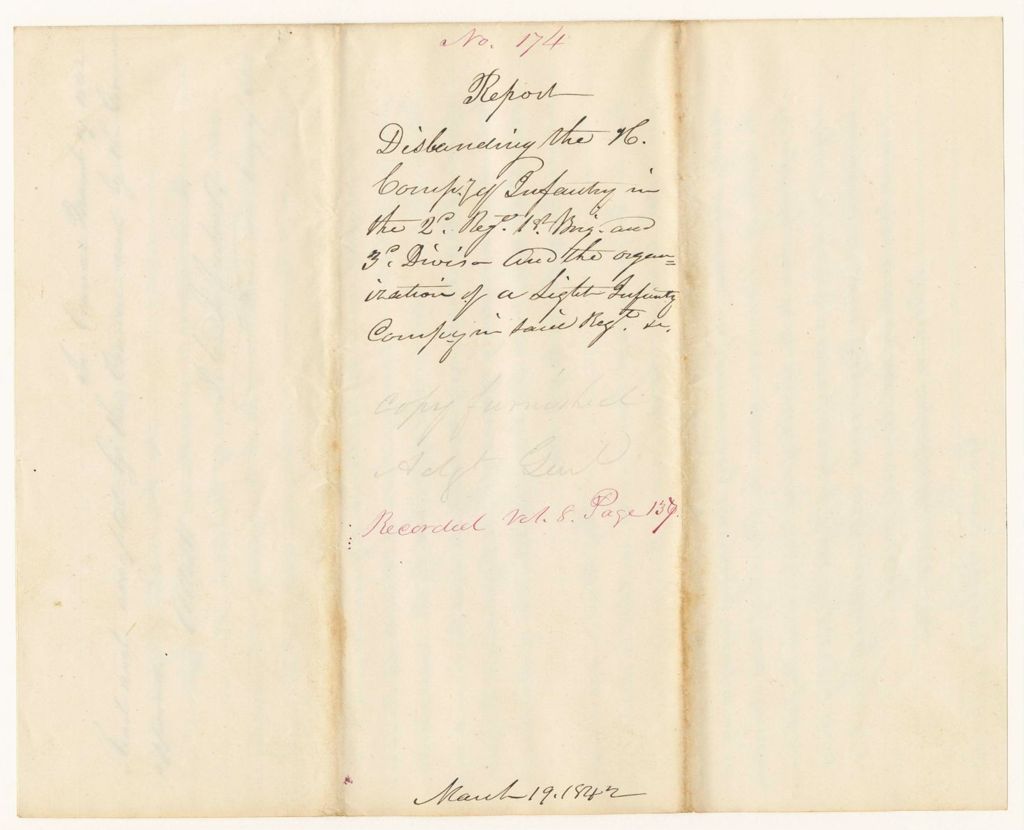 No. 174
Report
Disbanding the H.
Compy of Infantry in
the 2d. Regt. 1st. Brig. and
3d. Divisn and the organ=
ization of a Light Infantry
Compy in said Regt. &c.
copy furnished
Adjt Genl
Recorded Vol. 8. Page
March 19. 1842